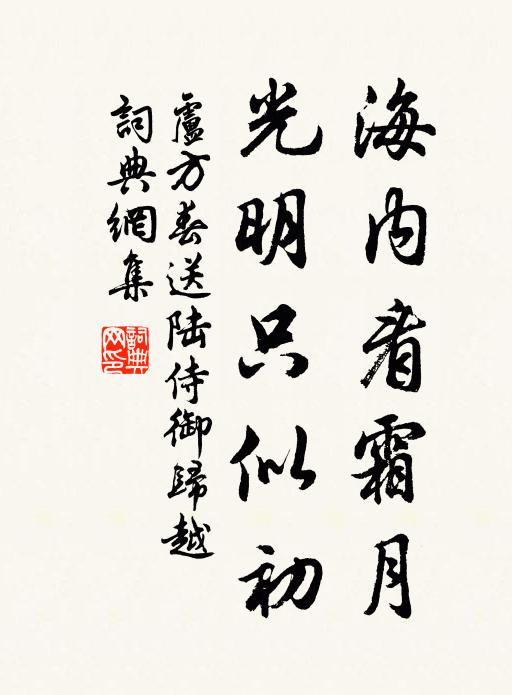 海内看霜月
光明只似初
盧方春送陸侍御歸越
詞典網集
詞典網印